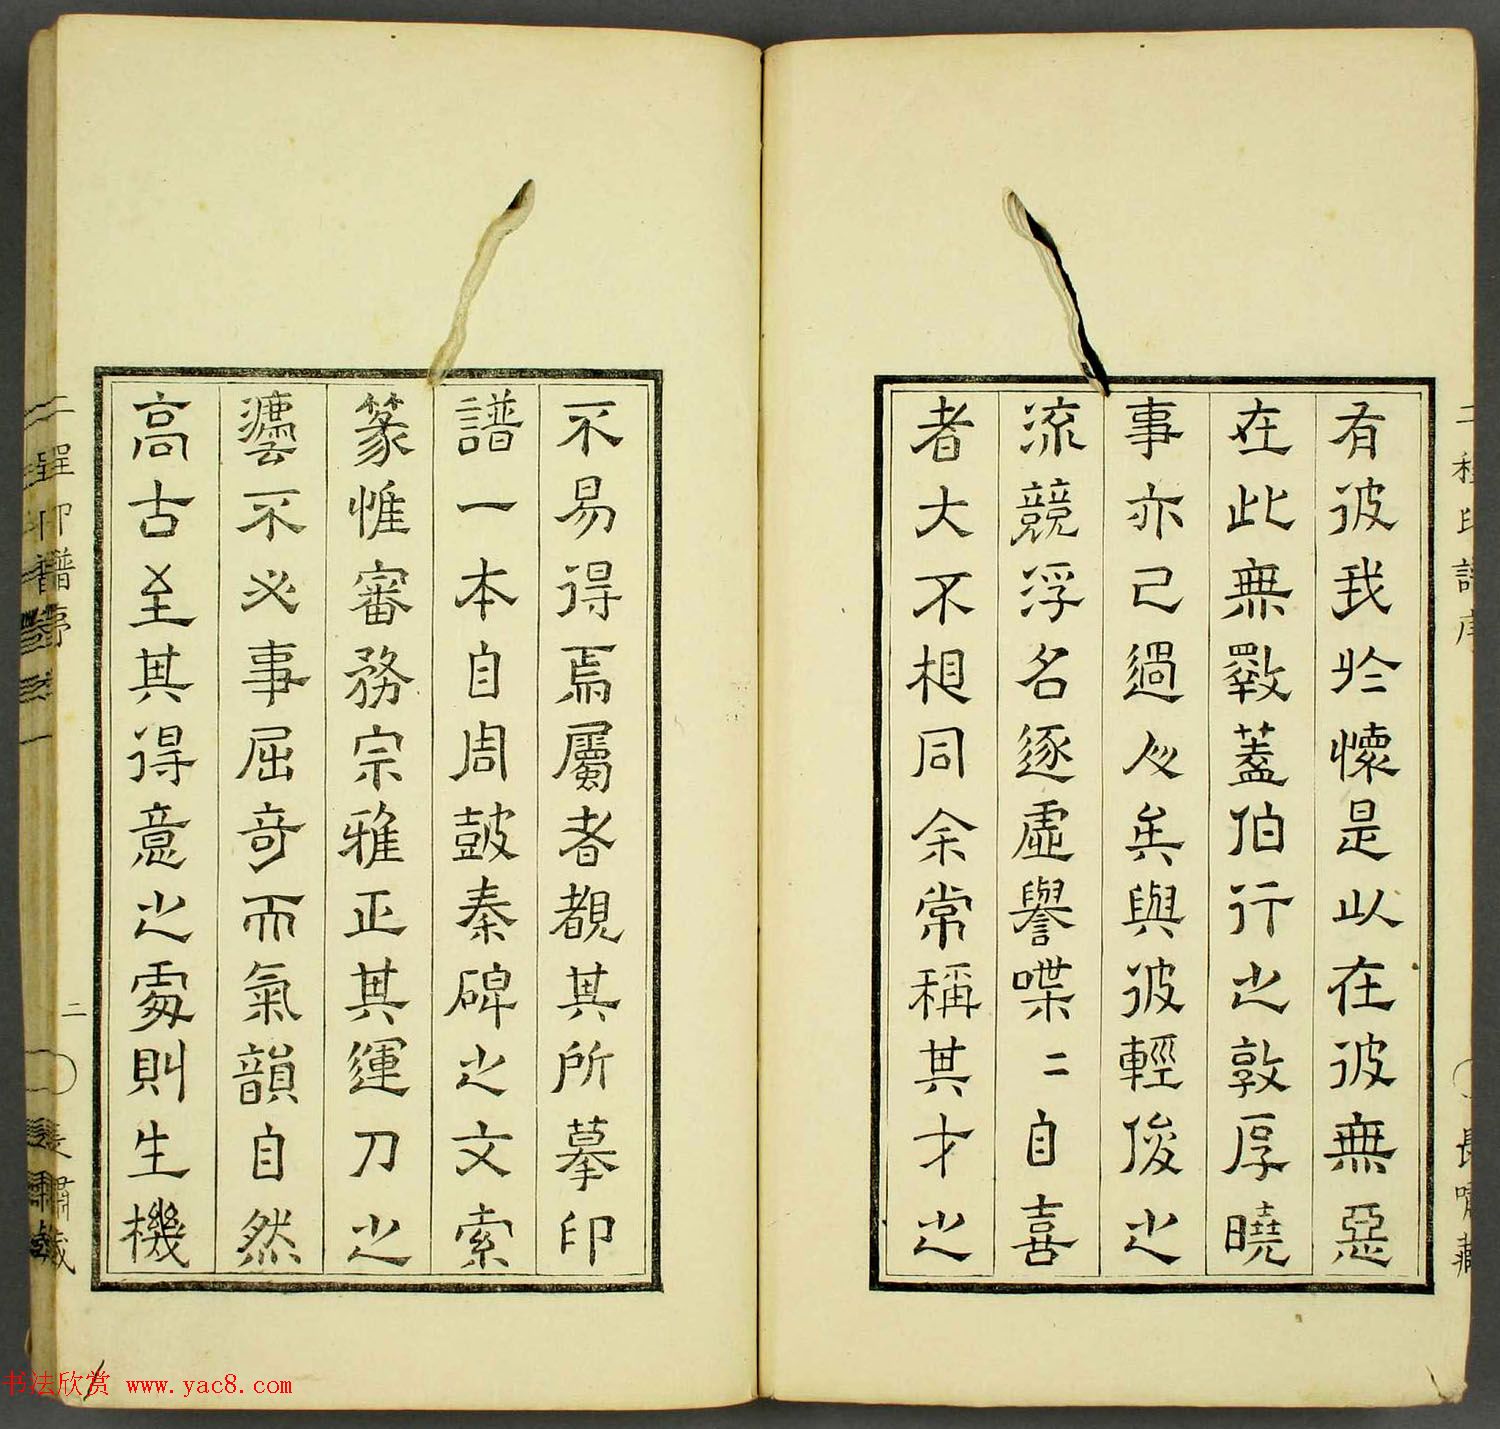 有彼我於懷是以在彼無惡
在此無斁蓋伯行之敦厚曉
事亦已過人矣與彼輕俊之
流競浮名逐虛譽喋二自喜
者大不相同余常稱其才之
不易得焉屬者覩其所摹印
譜一本自周鼓秦碑之文索
篆惟審務宗雅正其運刀之
不必事屈奇而氣韻自然
高古至其得意之處則生機
二程印譜序
長嘯藏
二
印譜序
書法欣赏 www.yac8.com